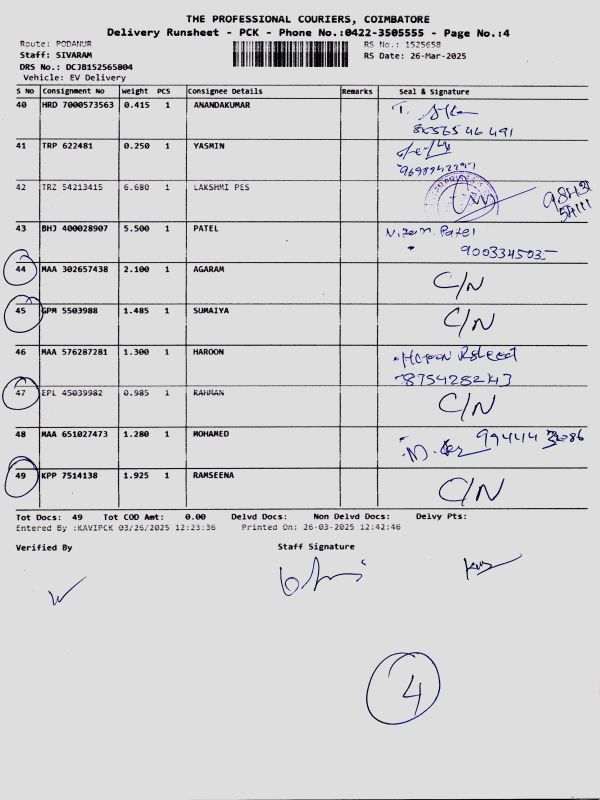 THE PROFESSIONAL COURIERS, COIMBATORE
Delivery Runsheet - PCK - Phone No.:0422-3505555 - Page No.:4
Route: PODANUR
RS No.: 1525658
Staff: SIVARAM
RS Date: 26-Mar-2025
DRS No.: DCJB152565804
Vehicle: EV Delivery
S No Consignment No Weight PCS Consignee Details Remarks Seal & Signature
40 HRD 7000573563 0.415 1 ANANDAKUMAR
41 TRP 622481 0.250 1 YASMIN
42 TRZ 54213415 6.680 1 LAKSHMI PES
43 BHJ 400028907 5.500 1 PATEL Patel
44 MAA 302657438 2.100 1 AGARAM C/N
45 GPM 5503988 1.485 1 SUMAIYA C/N
46 MAA 576287281 1.300 1 HAROON
8754282243
47 EPL 45039982 0.985 1 RAHMAN C/N
48 MAA 651027473 1.280 1 MOHAMED
49 KPP 7514138 1.925 1 RAMSEENA C/N
Tot Docs: 49 Tot COD Amt: 0.00 Delvd Docs: Non Delvd Docs: Delvy Pts:
Entered By :KAVIPCK 03/26/2025 12:23:36 Printed On: 26-03-2025 12:42:46
Verified By Staff Signature
4